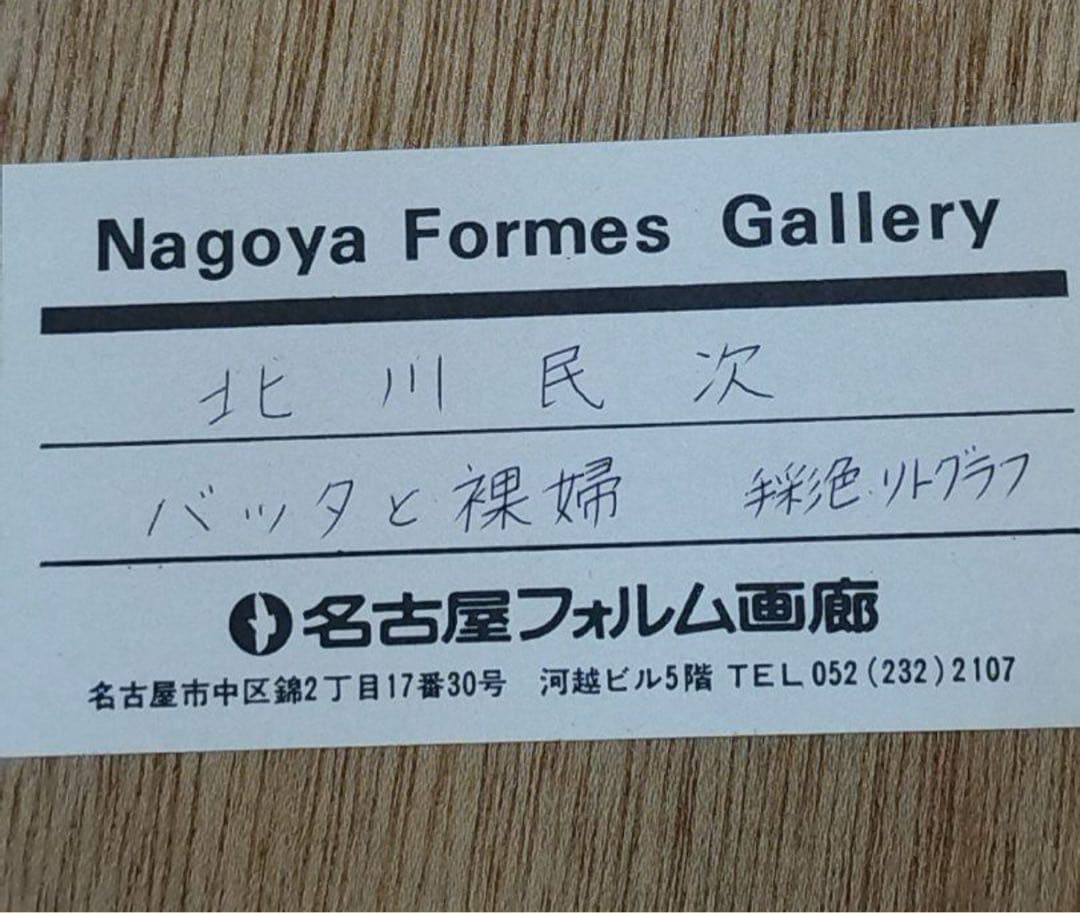 Nagoya Formes Gallery
北川民次
バッタと裸婦 手彩色リトグラフ
名古屋フォルム画廊
名古屋市中区錦2丁目17番30号 河越ビル5階 TEL 052(232)2107